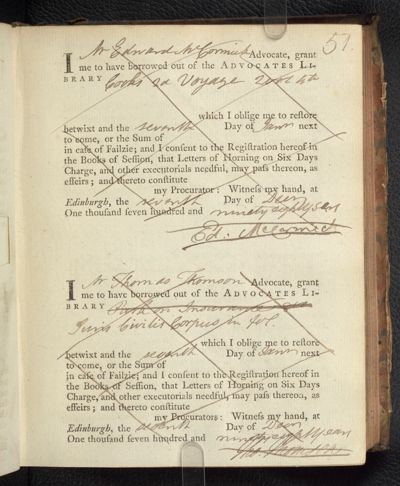 51.
I Mr Edward McCormick Advocate, grant
me to have borrowed out of the ADVOCATES LI-
BRARY Cooks 2d Voyage
which I oblige me to reſtore
betwixt and the seventh Day of Janry next
to come, or the Sum of
in caſe of Failzie; and I conſent to the Regiſtration hereof in
the Books of Seſſion, that Letters of Horning on Six Days
Charge, and other executorials needful, may paſs thereon, as
effeirs; and thereto conſtitute
my Procurator: Witneſs my hand, at
Edinburgh, the seventh Day of Decr
One thouſand ſeven hundred and ninety eight years
Ed. McCormick
I Mr Thomas Thomson Advocate, grant
me to have borrowed out of the ADVOCATES LI-
BRARY Park on Insurance
Juris Civilis Corpus in fol.
which I oblige me to reſtore
betwixt and the seventh Day of Janry next
to come, or the Sum of
in caſe of Failzie; and I conſent to the Regiſtration hereof in
the Books of Seſſion, that Letters of Horning on Six Days
Charge, and other executorials needful, may paſs thereon, as
effeirs; and thereto conſtitute
my Procurators: Witneſs my hand, at
Edinburgh, the seventh Day of Decr
One thouſand ſeven hundred and ninety eight years
Tho. Thomson